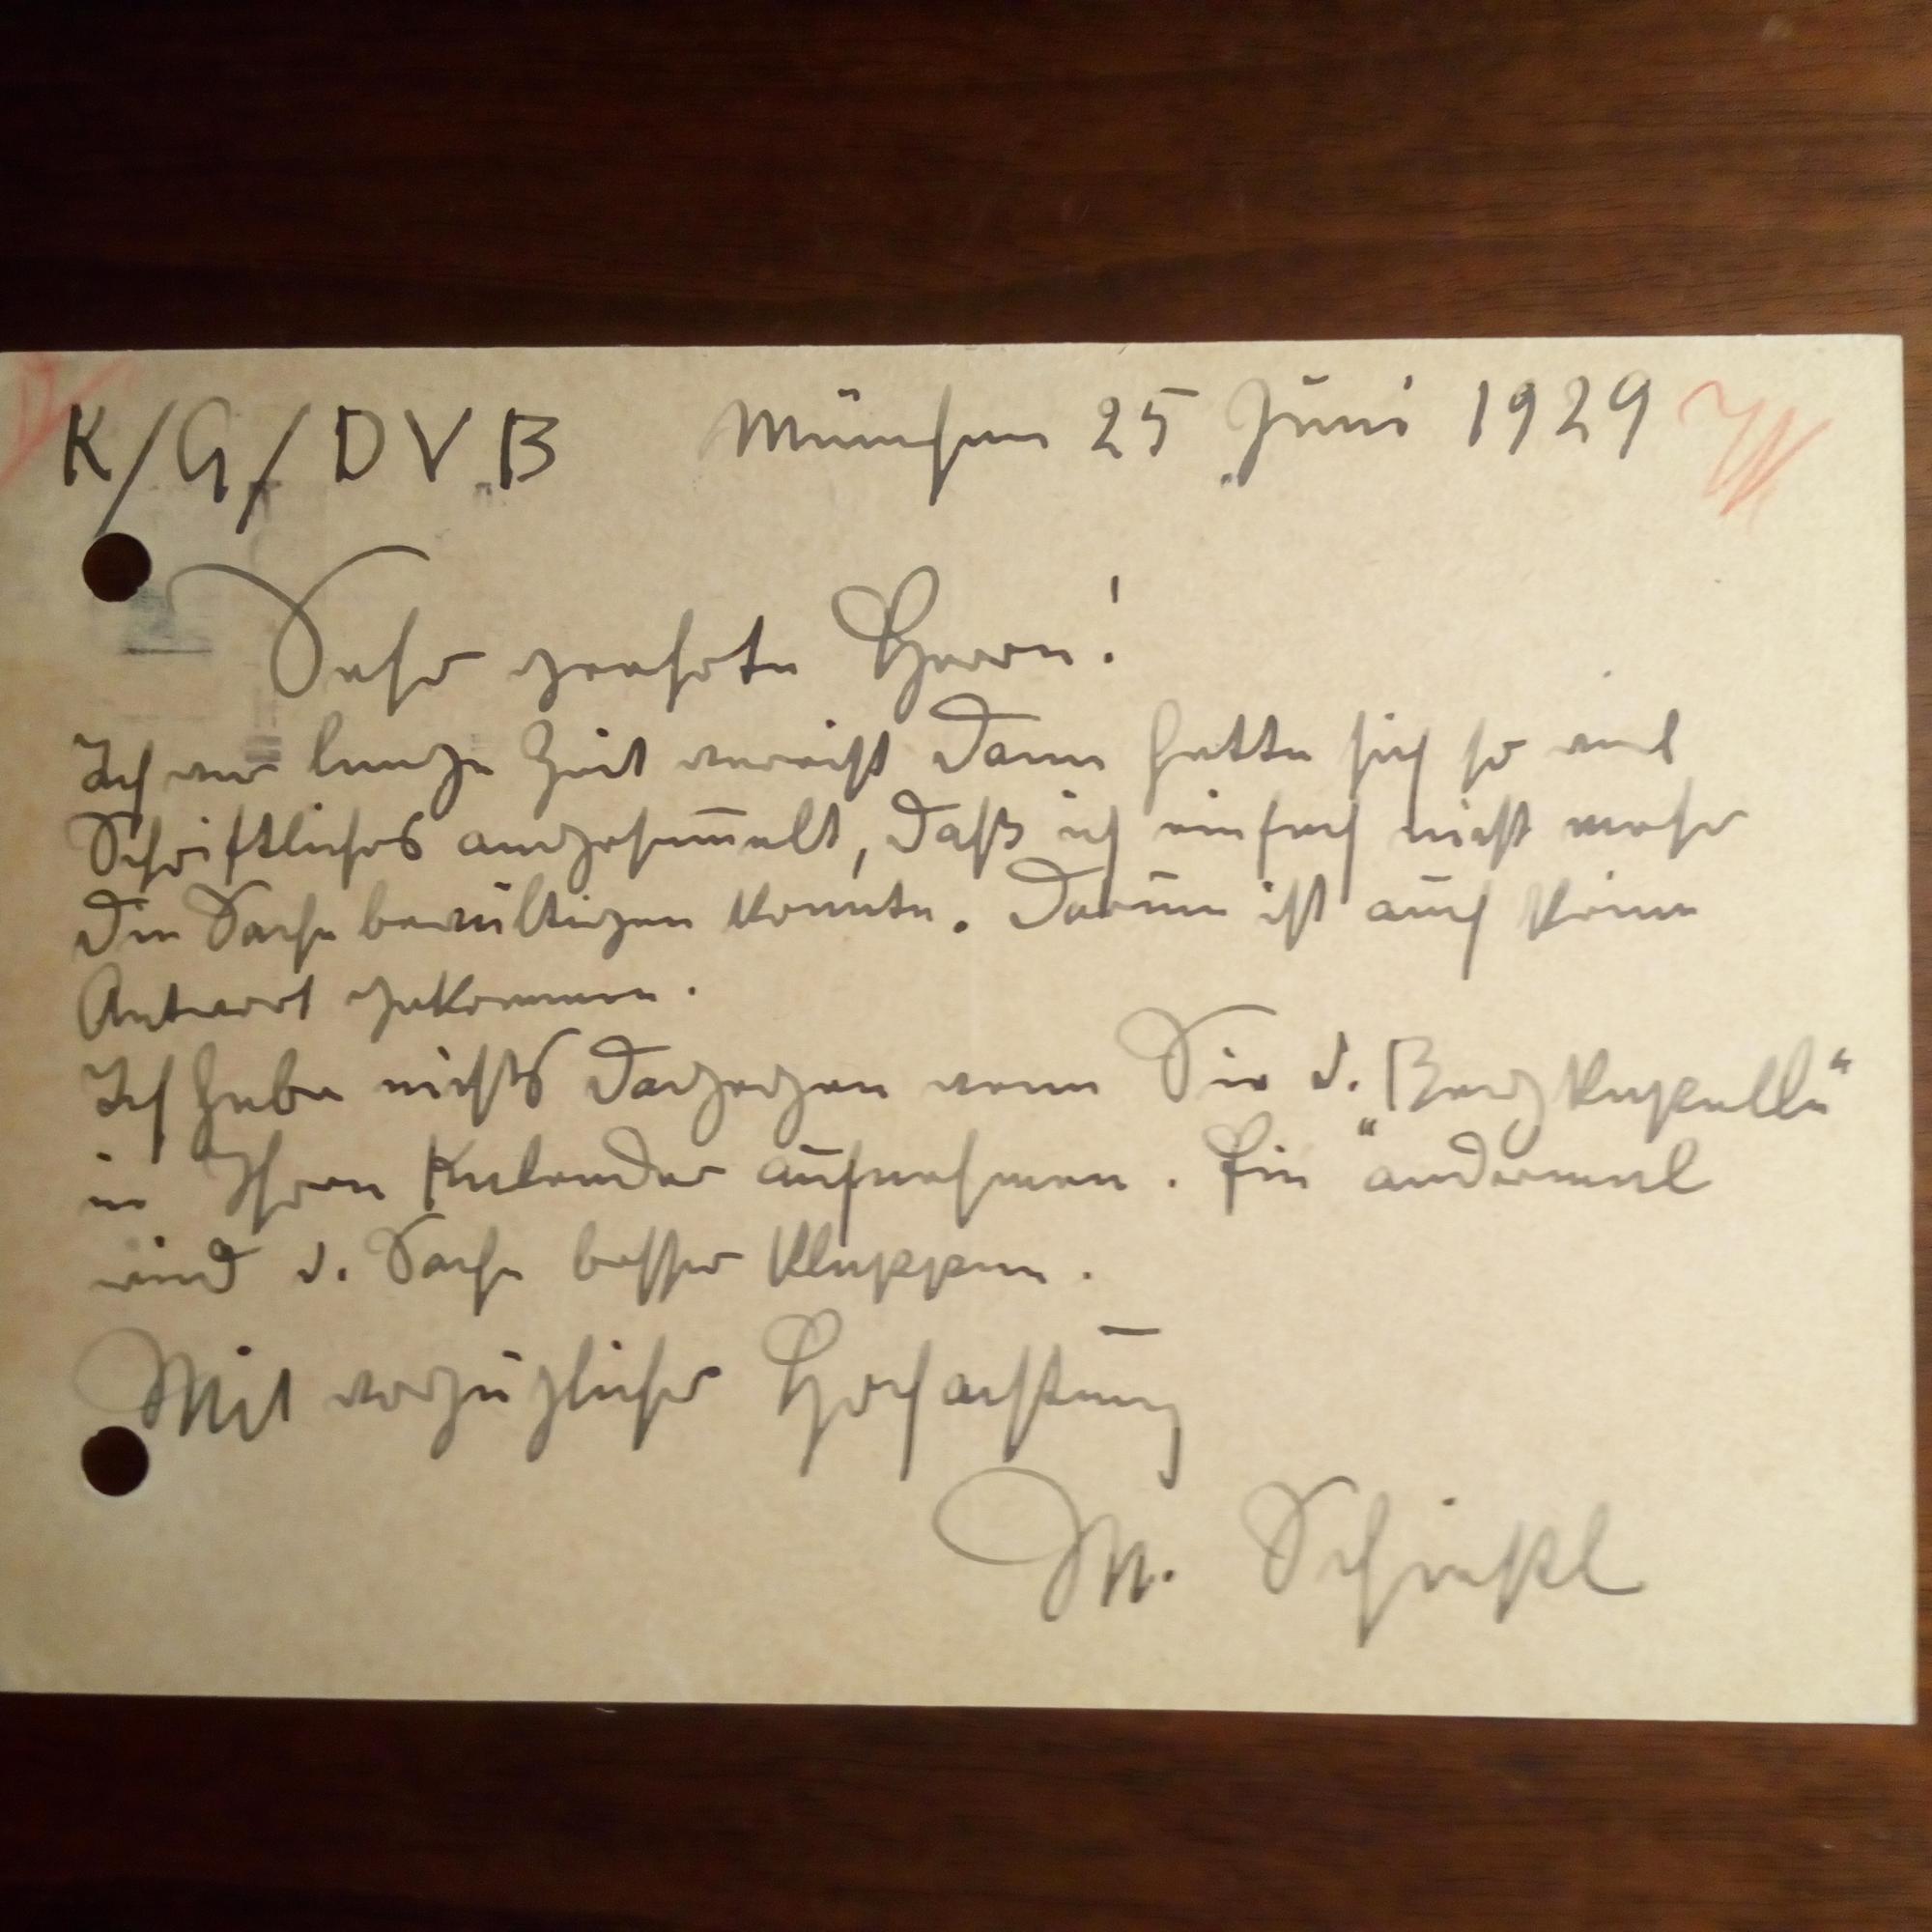 K/G/DVB München 25 Juni 1929
Sehr geehrte Herrn!
Ich war lange Zeit verreist dann hatte sich so viel
Schriftliches angesam̅elt, daß ich einfach nicht mehr
die Sache bewältigen konnte. Darum ist auch keine
Antwort gekommen.
Ich habe nichts dagegen wenn Sie d. „Bergkapelle“
in Ihren Kalender aufnehmen. Ein andermal
wird d. Sache besser klappen.
Mit vorzüglicher Hochachtung
M. Schiestl